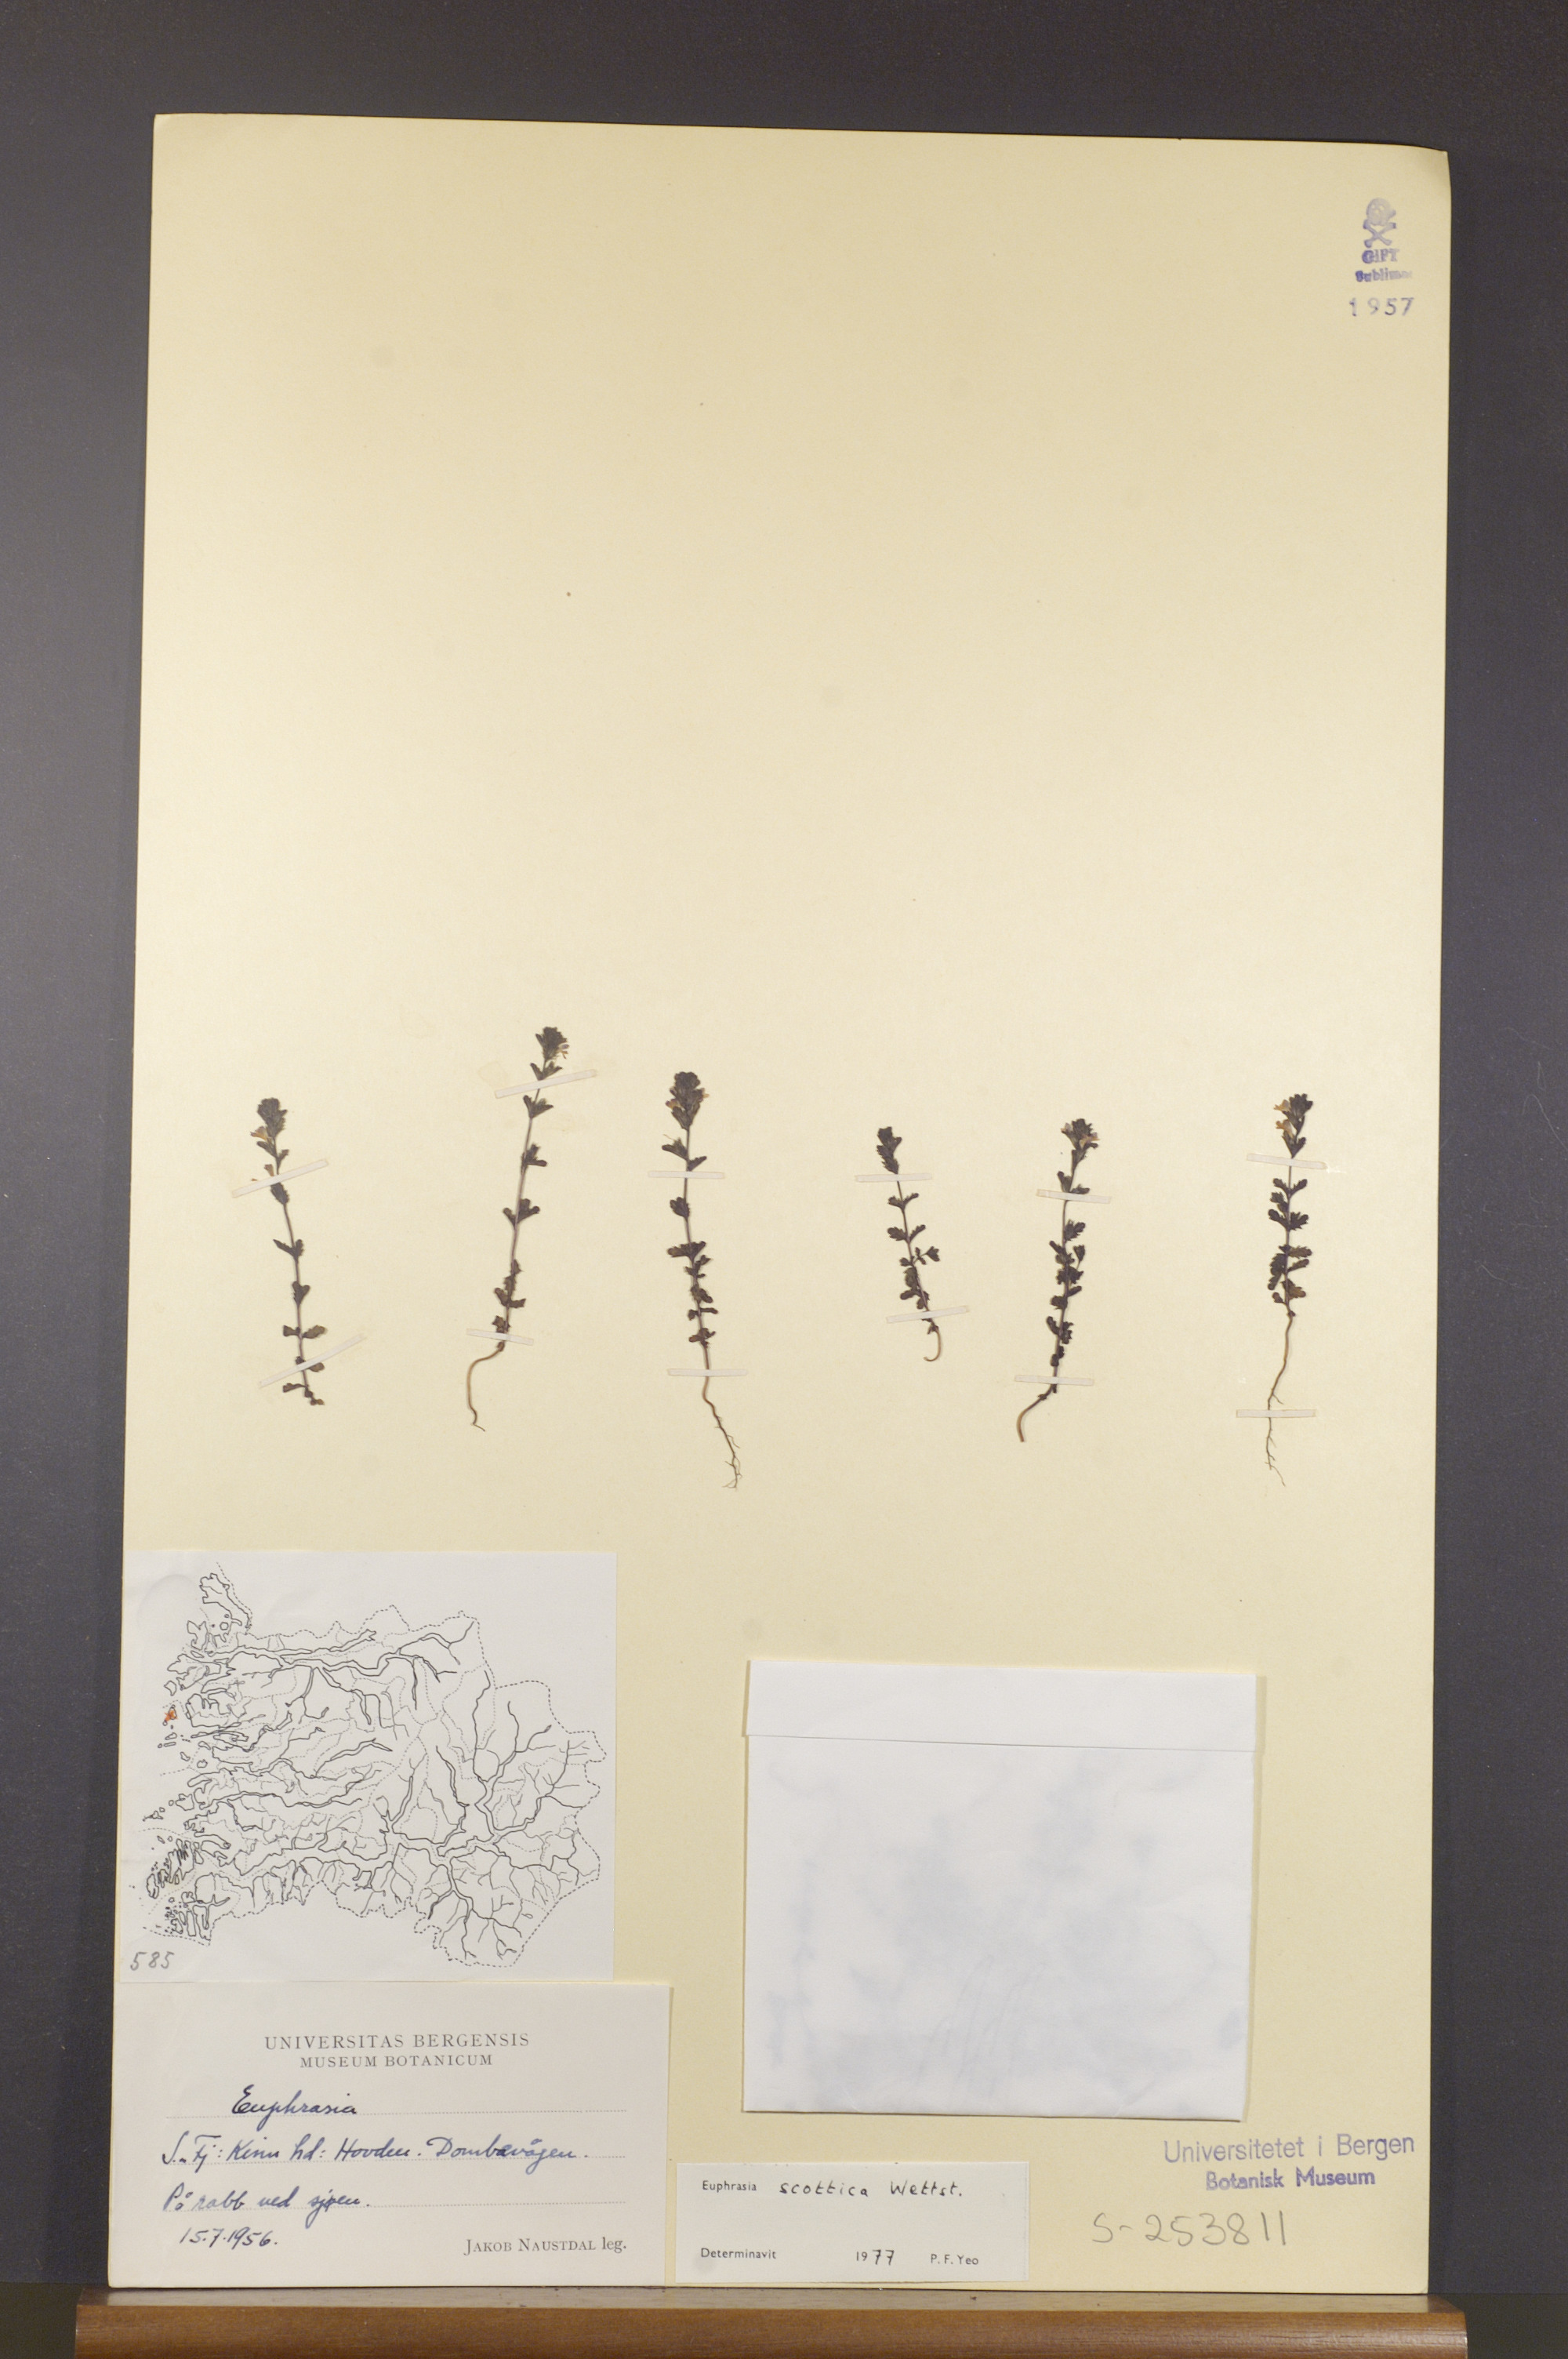 GIFT
Sublimat
1957
585
UNIVERSITAS BERGENSIS
MUSEUM BOTANICUM
Euphrasia
S. Fj: Kinn hd: Hovden. Dombevågen.
På rabb ved sjøen.
15.7.1956.
JAKOB NAUSTDAL leg.
Euphrasia scottica Wettst.
Determinavit 1977 P. F. Yeo
Universitetet i Bergen
Botanisk Museum
S-253811